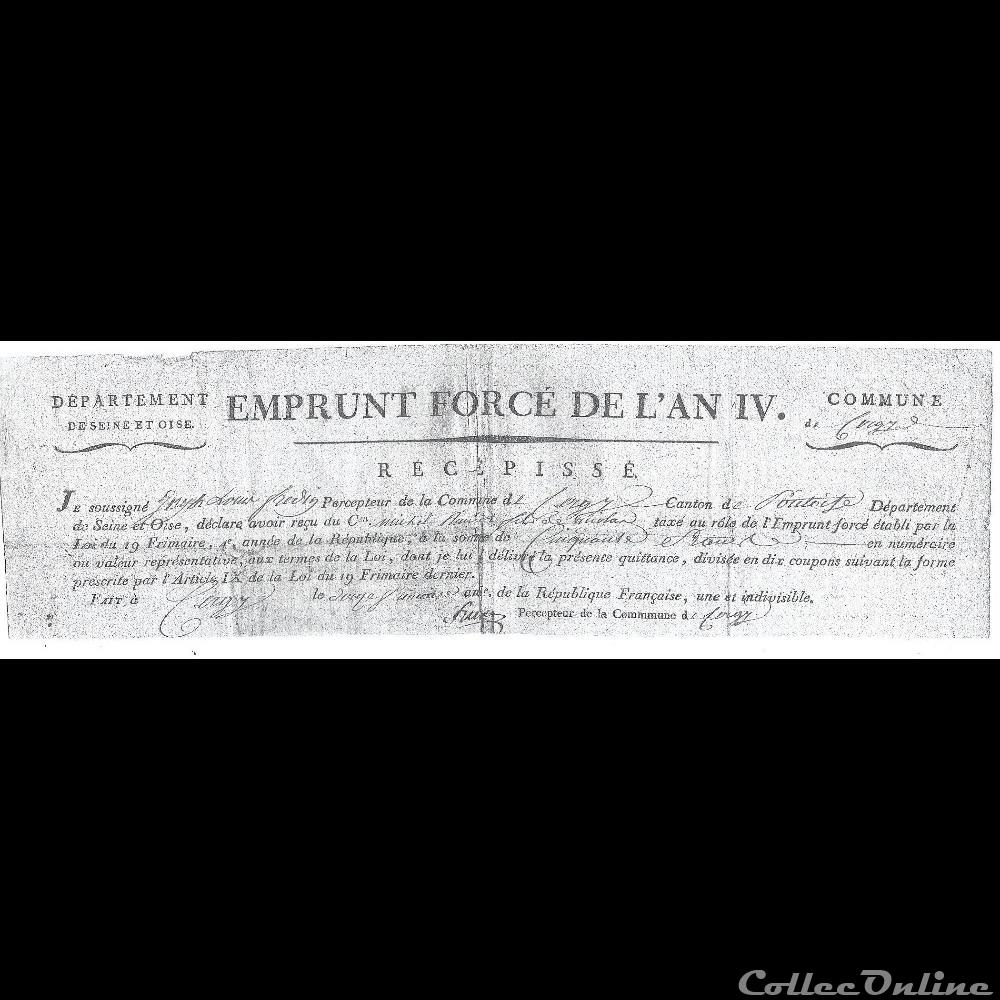 DÉPARTEMENT
DE SEINE ET OISE.
EMPRUNT FORCÉ DE L'AN IV.
COMMUNE
de Cergy
RÉCÉPISSÉ
JE soussigné Louis Percepteur de la Commune de Cergy Canton de Pontoise Département
de Seine et Oise, déclare avoir reçu du C.en Michel taxé au rôle de l'Emprunt forcé établi par la
Loi du 19 Frimaire, 4e. année de la République, à la somme de Cinquante francs en numéraire
ou valeur représentative, aux termes de la Loi, dont je lui délivre la présente quittance, divisée en dix coupons suivant la forme
prescrite par l'Article IX de la Loi du 19 Frimaire dernier.
FAIT à Cergy le an de la République Française, une et indivisible.
Percepteur de la Commmune de Cergy
CollecOnline